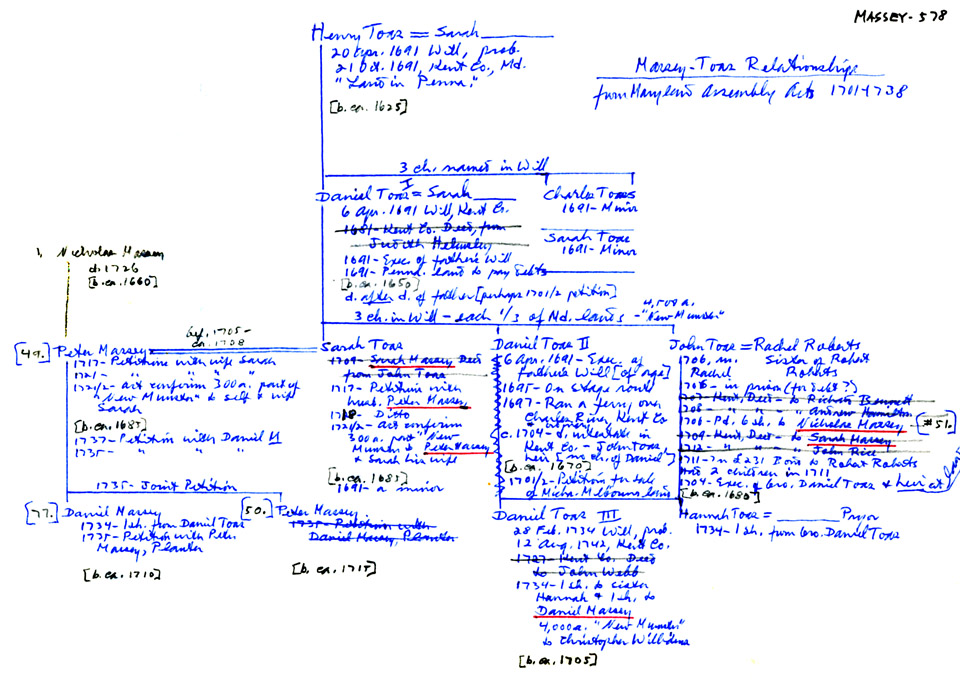 MASSEY-578
Henry Toas = Sarah
20 Apr. 1691 Will, prob.
21 Oct. 1691, Kent Co., Md.
"Land in Penna."
[b. ca. 1625]
Massey-Toas Relationships
from Maryland Assembly Acts 1701-1738
3 ch. named in Will
Daniel Toas I = Sarah
6 Apr. 1691 Will, Kent Co.
1681-Kent Co. Deed, from
Judith Helmsley
1691-Exec. of father's Will
1691-Penna. land to pay debts
[b. ca. 1650]
d. after d. of father [perhaps 1701/2 petition]
3 ch. in Will - each 1/3 of Md. lands - "New Munster"
4,500 a.
Charles Toas
1691-Minor
Sarah Toas
1691-Minor
1. Nicholas Massey
d. 1726
[b. ca. 1660]
bef. 1705-
ca. 1708
[49.] Peter Massey
1717-Petition with wife Sarah
1721- " " " "
1721/2-Act confirm 300 a. part of
"New Munster" to self & wife
Sarah
[b. ca. 1685]
1737-Petition with Daniel M
1735- " "
1735-Joint Petition
Sarah Toas
1709-Sarah Massey, Deed
from John Toas
1717-Petition with
husb. Peter Massey
1718-Ditto
1721/2-Act confirm
300 a. part "New
Munster" & Peter Massey
& Sarah his wife
[b. ca. 1685]
1691-a minor
Daniel Toas II
6 Apr. 1691-Exec. of
father's Will [of age]
1695-On stage route
1697-Ran a ferry over
Chester River, Kent Co.
c. 1704-d. intestate in
Kent Co. - John Toas,
heir [no ch. of Daniel]
[b. ca. 1670]
1701/2-Petition for sale
of Micha. Melbourns lands
John Toas = Rachel Roberts
1706, m. Sister of Robert
Rachel Roberts
1705-in prison (for debt?)
1707-Kent, Deed-to Richard Bennett
1708- " " - " Andrew Hamilton
1706-Pd. 6 sh. to Nicholas Massey [#51.]
1709-Kent, Deed-to Sarah Massey
1712- " " - " John Rice
1711-Ind £31 Bond to Robert Roberts
Had 2 children in 1711
1704-Exec. of bro. Daniel Toas & heir at law
[b. ca. 1680]
[77.] Daniel Massey
1734-1 sh. from Daniel Toas
1735-Petition with Peter
Massey, Planter
[b. ca. 1710]
[50.] Peter Massey
1735-Petition with
Daniel Massey, Planter
[b. ca. 1715]
Daniel Toas III
28 Feb. 1734 Will, prob.
12 Aug. 1742, Kent Co.
1727-Kent Co. Deed
to John Webb
1734-1 sh. to sister
Hannah & 1 sh. to
Daniel Massey
4,000 a. "New Munster"
to Christopher Williams
[b. ca. 1705]
Hannah Toas = Pryor
1734-1 sh. from bro. Daniel Toas